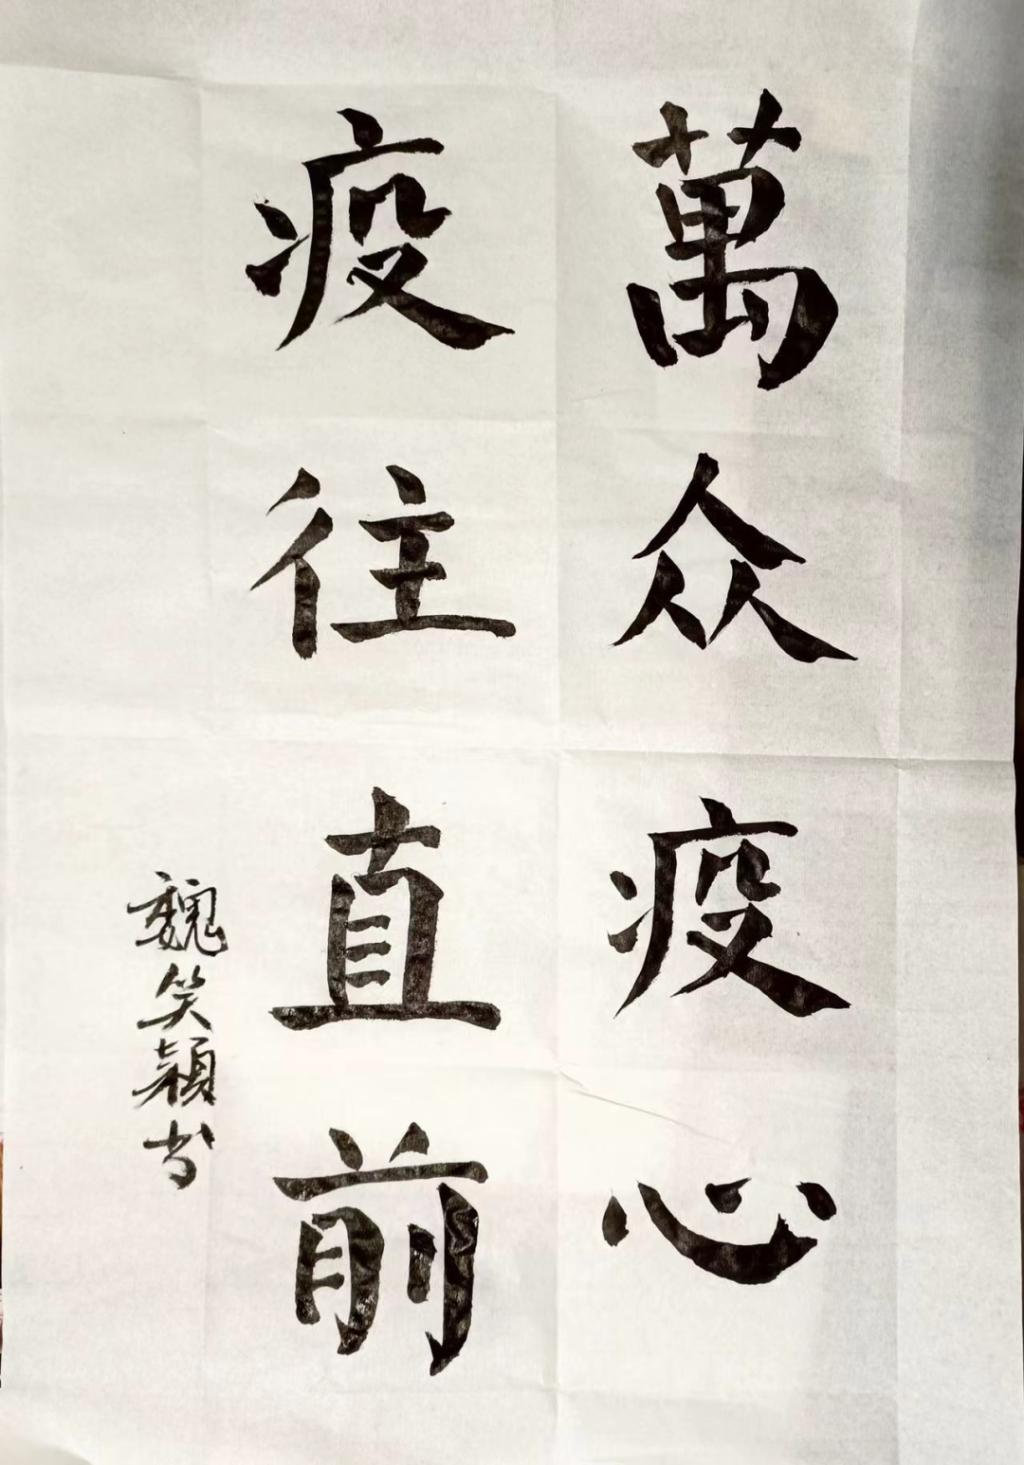 萬众疫心
疫往直前
魏笑颖书